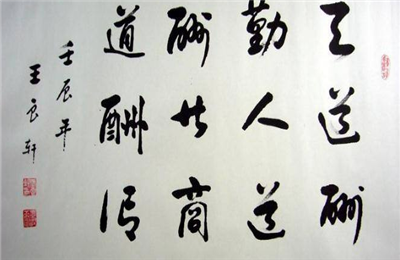 天道酬
勤人道
酬商
道酬信
壬辰年
王良轩